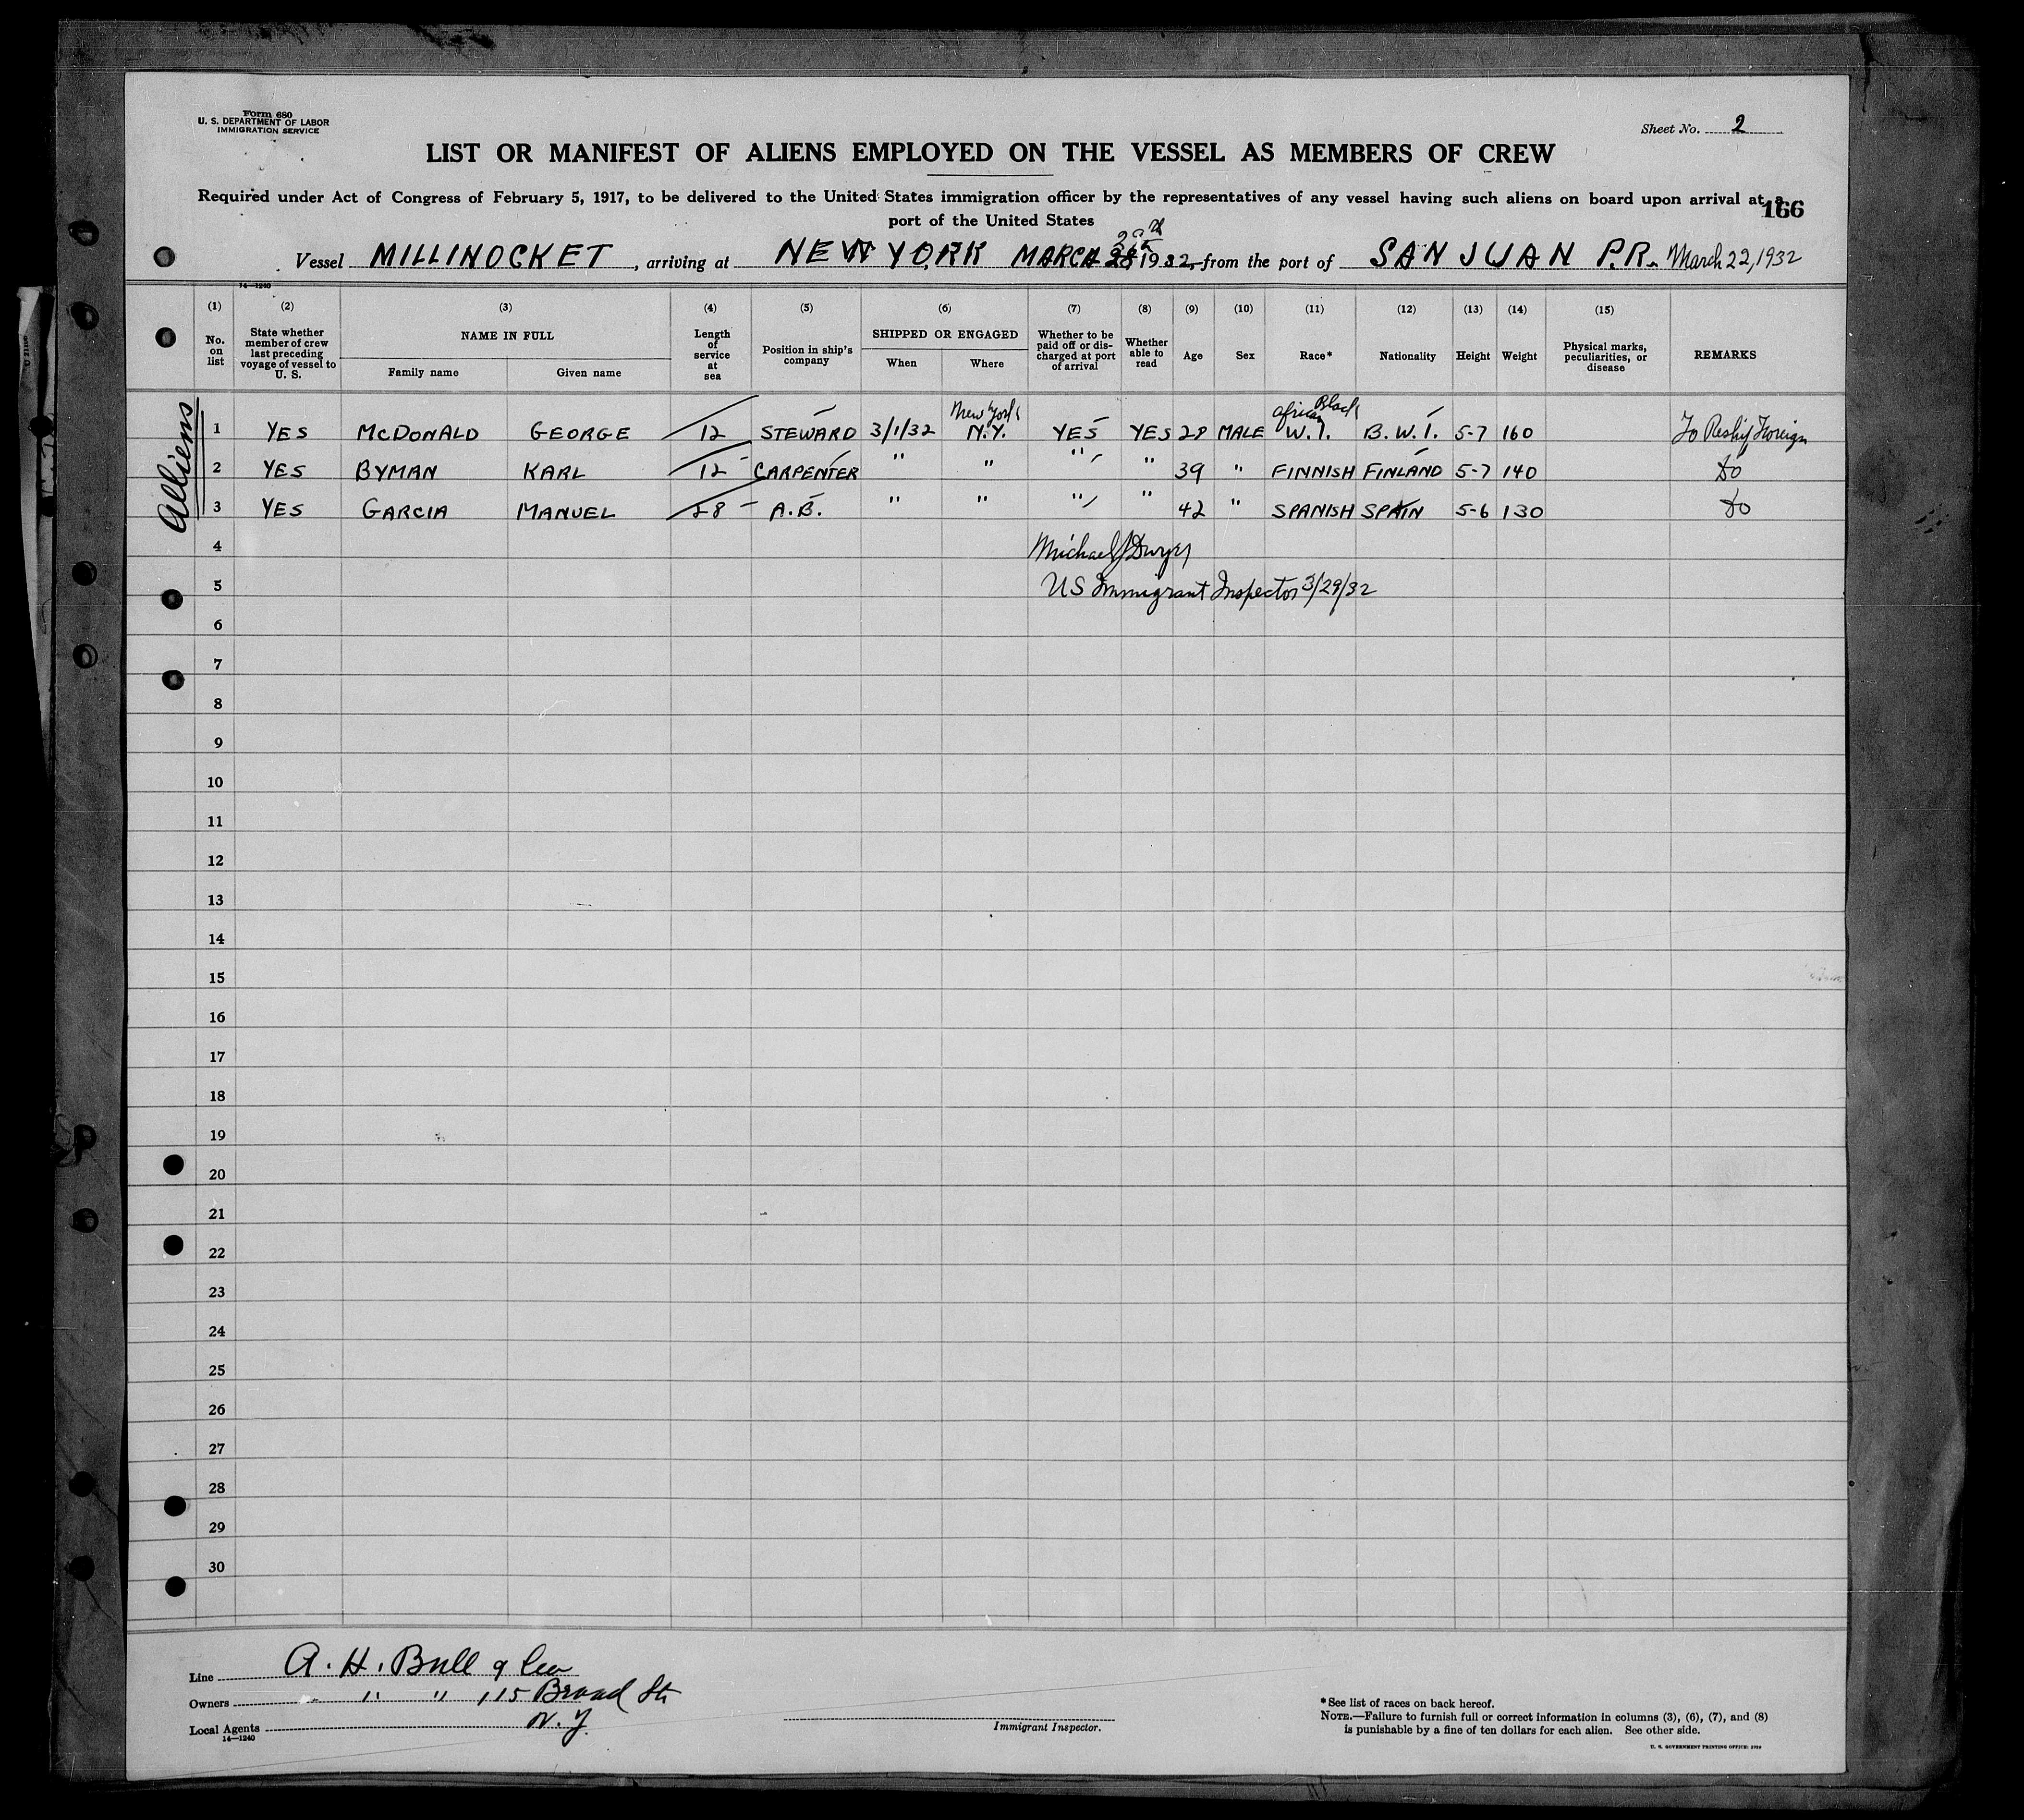 Form 680
U. S. DEPARTMENT OF LABOR
IMMIGRATION SERVICE
Sheet No. 2
LIST OR MANIFEST OF ALIENS EMPLOYED ON THE VESSEL AS MEMBERS OF CREW
Required under Act of Congress of February 5, 1917, to be delivered to the United States immigration officer by the representatives of any vessel having such aliens on board upon arrival at a
port of the United States
166
29th
Vessel MILLINOCKET, arriving at NEW YORK MARCH 1932, from the port of SAN JUAN P.R. March 22, 1932
14—1240
(1) (2) (3) (4) (5) (6) (7) (8) (9) (10) (11) (12) (13) (14) (15)
No. on list
State whether member of crew last preceding voyage of vessel to U. S.
NAME IN FULL
Family name Given name
Length of service at sea
Position in ship's company
SHIPPED OR ENGAGED
When Where
Whether to be paid off or discharged at port of arrival
Whether able to read
Age
Sex
Race*
Nationality
Height
Weight
Physical marks, peculiarities, or disease
REMARKS
Alliens
New York African Black
1 YES McDONALD GEORGE 12 STEWARD 3/1/32 N.Y. YES YES 29 MALE W.I. B.W.I. 5-7 160 To Reship Foreign
2 YES BYMAN KARL 12 CARPENTER " " " " 39 " FINNISH FINLAND 5-7 140 do
3 YES GARCIA MANUEL 28 A.B. " " " " 42 " SPANISH SPAIN 5-6 130 do
4 Michael J Dwyer
5 US Immigrant Inspector 3/29/32
6
7
8
9
10
11
12
13
14
15
16
17
18
19
20
21
22
23
24
25
26
27
28
29
30
Line A. H. Bull & Co
Owners " " " 115 Broad St
Local Agents N.Y.
14—1240
Immigrant Inspector.
*See list of races on back hereof.
NOTE.—Failure to furnish full or correct information in columns (3), (6), (7), and (8)
is punishable by a fine of ten dollars for each alien. See other side.
U. S. GOVERNMENT PRINTING OFFICE: